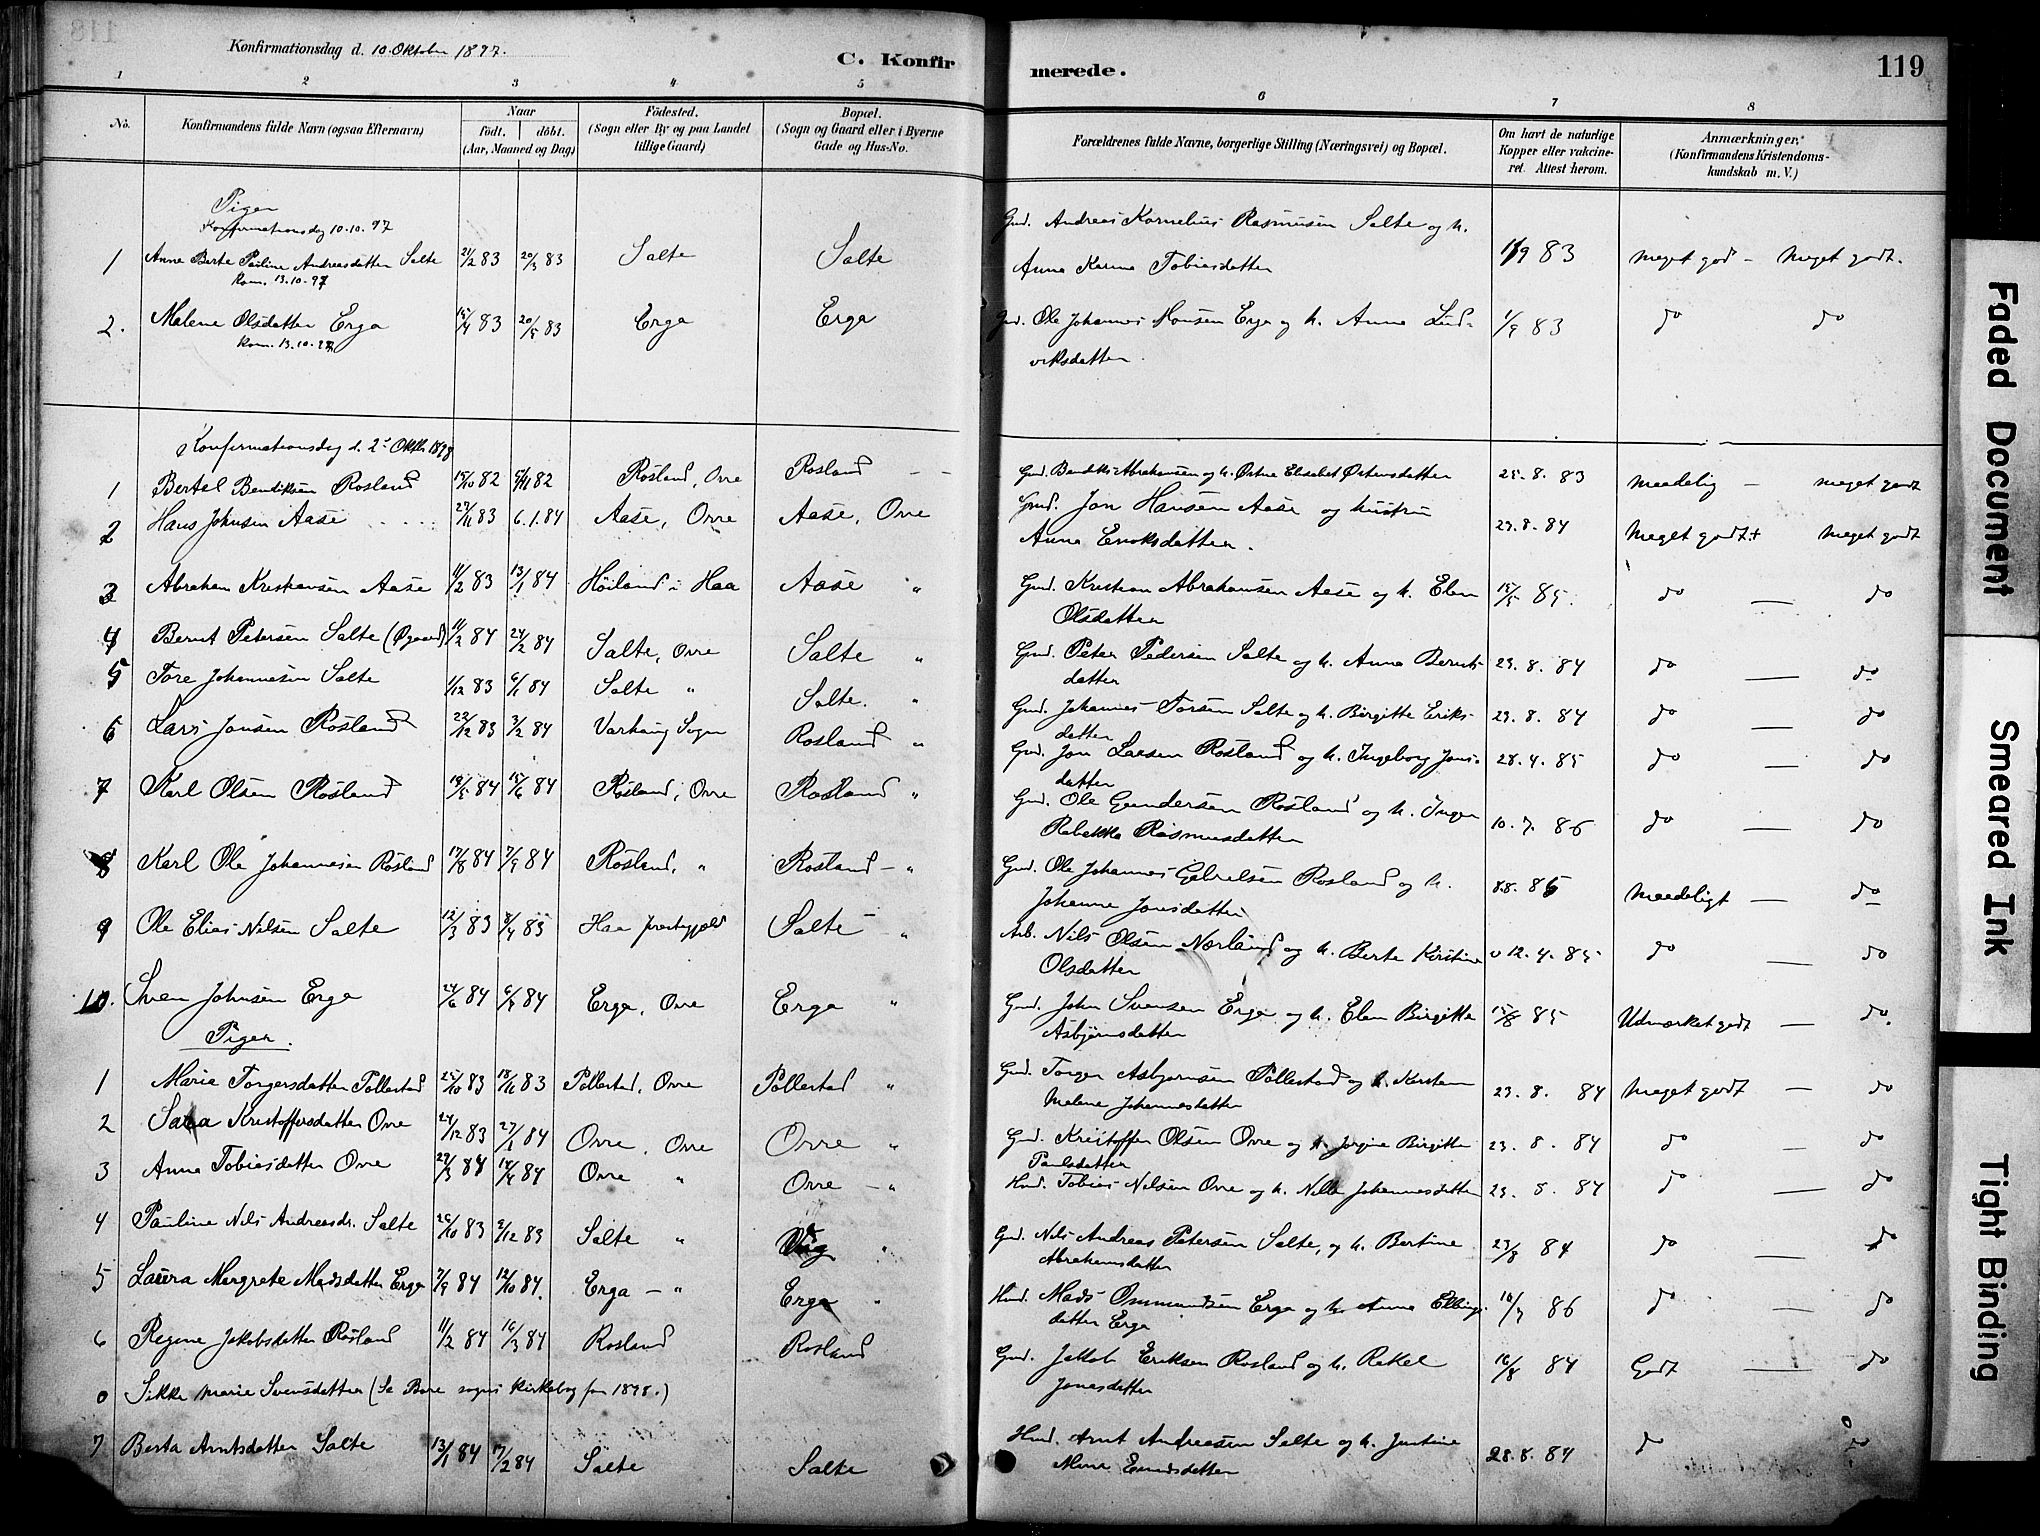 118
Konfirmationsdag d. 10. Oktober 1897.
C. Konfirmerede.
119
1 2 3 4 5 6 7 8
No.
Konfirmandens fulde Navn (ogsaa Efternavn)
Naar
födt. döbt.
(Aar, Maaned og Dag)
Födested.
(Sogn eller By og paa Landet
tillige Gaard)
Bopæl.
(Sogn og Gaard eller i Byerne
Gade og Hus-No.
Forældrenes fulde Navne, borgerlige Stilling (Næringsvei) og Bopæl.
Om havt de naturlige
Kopper eller vakcine-
ret. Attest herom.
Anmærkninger.
(Konfirmandens Kristendoms-
kundskab m. V.)
Piger
Konfirmationsdag 10.10.97
1 Anne Berte Pauline Andreasdatter Salte 21/2 83 20/3 83 Salte Salte Gmd. Andreas Kornelius Rasmussen Salte og h. 1/9 83 Meget god - Meget godt.
kom. 13.10.97 Anna Karina Tobiasdatter
2. Malene Olsdatter Erga 15/4 83 20/5 83 Erga Erga Gmd. Ole Johannes Monsen Erga og h. Anna Lud- 1/9 83 do do
kom. 13.10.97 viksdatter.
Konfirmationsdag d. 2den Oktbr 1898
1 Bertel Bendiksen Rosland 15/10 82 82 Rosland, Orre Rosland - - Gmd. Bendik Abrahamsen og h. Østine Elisabet Østensdatter 25.8.83 Maadelig - meget godt
2 Hans Johnsen Aase 83 6.1.84 Aase, Orre Aase, Orre Gmd. Jon Hansen Aase og hustru 23.8.84 Meget godt + meget godt
Anna Enoksdatter.
3 Abraham Kristiansen Aase 11/2 83 13/1 84 Höiland i Haa Aase " Gmd. Kristian Abrahamsen Aase og h. Elen 15/5 85. do — do
Olsdatter
4 Bernt Petersen Salte (Øgaard) 11/2 84 24/2 84 Salte, Orre Salte " Gmd. Peter Pedersen Salte og h. Anna Bernts- 23.8.84 do — do
datter
5 Tore Johannesen Salte 1/12 83 6/1 84 Salte " Salte. " Gmd. Johannes Torsen Salte og h. Birgitte Eriks- 23.8.84 do — do
datter
6 Lars Jonsen Rosland 22/12 83 3/2 84 Varhaug Sogn Rosland " Gmd. Jon Larsen Rosland og h. Ingeborg Jons- 28.4.85 do — do
datter
7 Karl Olsen Rosland 19/5 84 15/6 84 Rosland, Orre Rosland " Gmd. Ole Gundersen Rosland og h. Inger 10.7.86 do — do
Rebekka Rasmusdatter
8 Karl Ole Johannesen Rosland 17/8 84 7/9 84 Rosland, " Rosland - " Gmd. Ole Johannes Gabrielsen Rosland og h. 8.8.86 Maadeligt — do
Johanne Jonsdatter
9 Ole Elias Nilsen Salte 12/3 83 8/4 83 Haa prestegjeld Salte - " Arb. Nils Olsen Nærland og h. Berte Kirstine 12.4.85 do — do
Olsdatter
10. Sven Johnsen Erga 24/6 84 84 Erga, Orre Erga " Gmd. John Svensen Erga og h. Elen Birgitte 15/8 85 Udmærket godt — do.
Asbjørnsdatter
Piger.
1 Marie Torgersdatter Pollestad 25/10 83 18/11 83 Pollestad, Orre Pollestad " Gmd. Torger Asbjørnsen Pollestad og h. Karsten 23.8.84 Meget godt — do
Malene Johannesdatter
2 Sara Kristoffersdatter Orre 24/12 83 27/1 84 Orre, Orre Orre " Gmd. Kristoffer Olsen Orre og h. Jorgine Birgitte 23.8.84 do — do
Paulsdatter
3 Anna Tobiasdatter Orre 84 14/4 84 Orre " Orre - " Hmd. Tobias Nilsen Orre og h. Nille Johannesdatter 23.8.84 do — do
4 Pauline Nils Andreasdr. Salte 26/10 83 9/12 83 Salte " " Gmd. Nils Andreas Petersen Salte, og h. Bertine 23/8 84 do — do
Abrahamsdatter
5 Laura Margrete Madsdatter Erga 7/9 84 12/10 84. Erga - " Erga " Hmd. Mads Ommundsen Erga og h. Anna Ellings- 10/7 86 do — do
datter Erga
6 Regine Jakobsdatter Rosland 11/2 84 16/3 84 Rosland Rosland Gmd. Jakob Eriksen Rosland og h. Rakel 16/8 84 Godt — do
Jonasdatter
0 Sikke Marie Svensdatter (Se Bore sogns kirkebog for 1898.)
7 Berta Arntsdatter Salte 13/1 84 17/2 84 Salte Salte Hmd. Arnt Andreasen Salte og h. Justine 28.8.84 do do
datter
Faded Document
Smeared Ink
Tight Binding